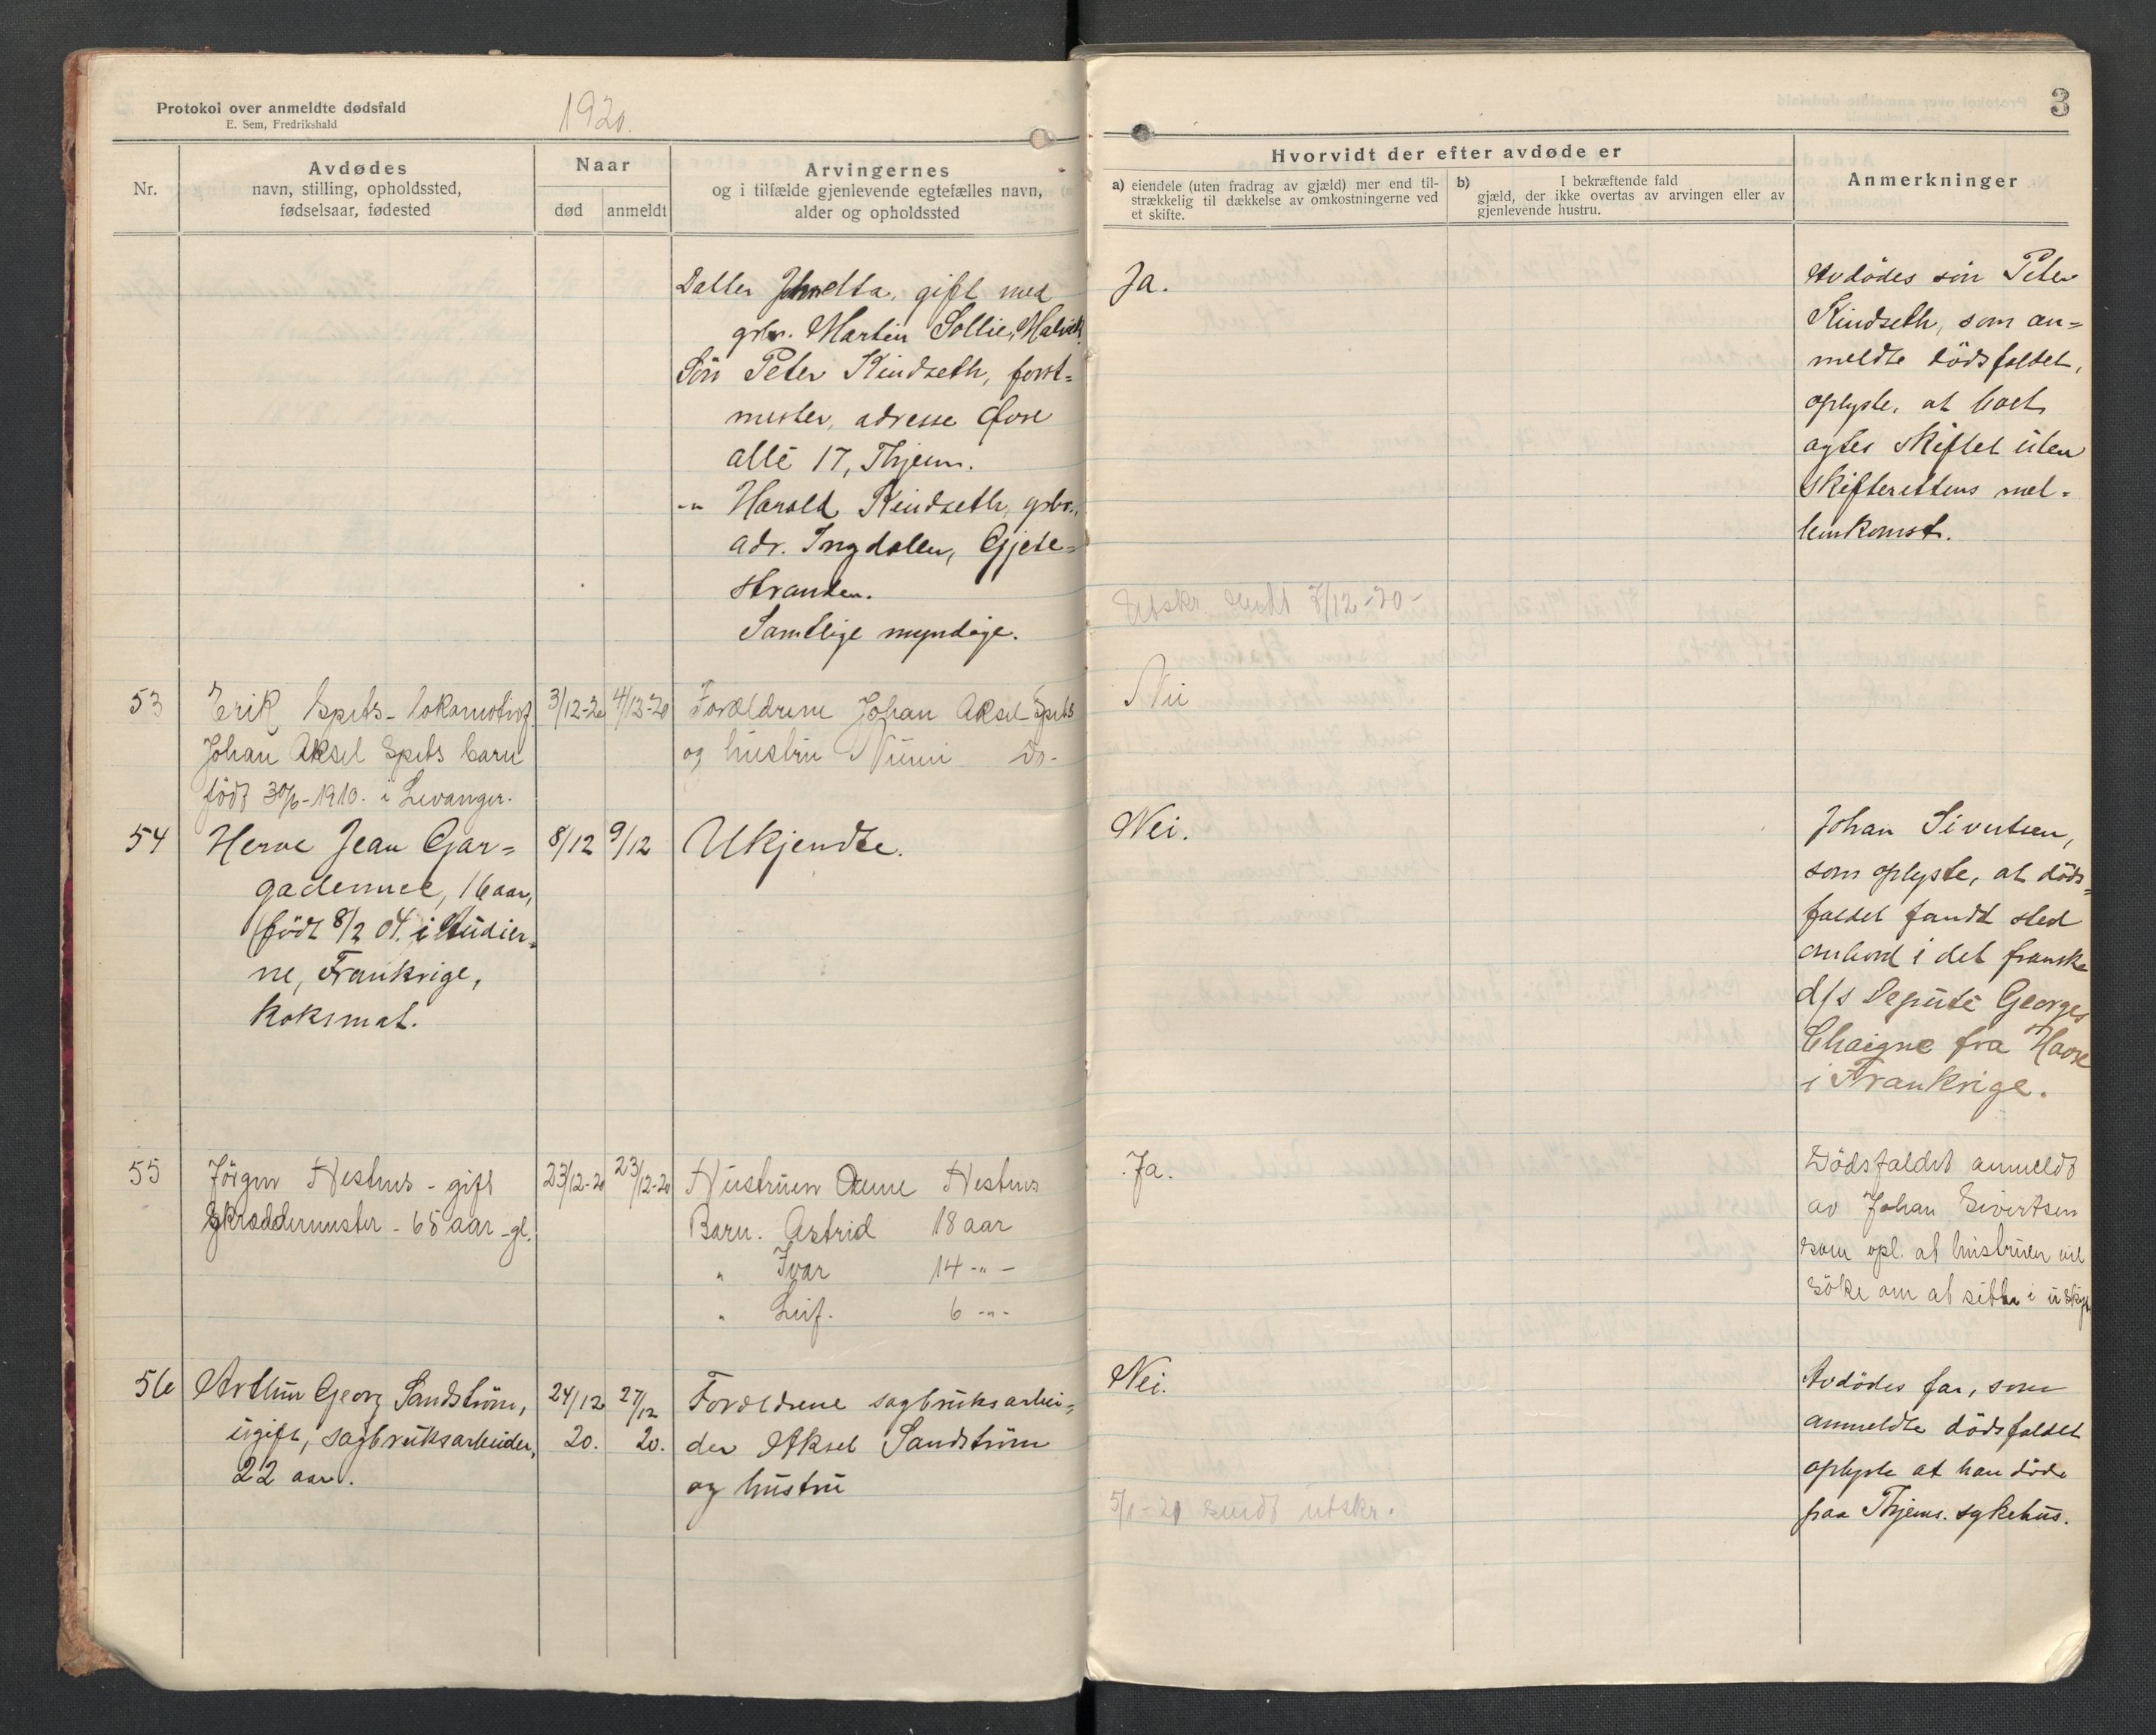 Protokol over anmeldte dødsfald
E. Sem, Fredrikshald
1920.
Nr.
Avdødes
navn, stilling, opholdssted,
fødselsaar, fødested
Naar
død
anmeldt
Arvingernes
og i tilfælde gjenlevende egtefælles navn,
alder og opholdssted
Datter gift med
gbr. Martin Sollie, Malvik
Sön Peter Kindseth, forst=
mester, adresse
allé 17, Thjem.
-"- Harald Kindseth, gbr.,
adr. Ingdalen, Gjete=
stranden.
Samtlige myndige.
53
Erik Spets - lokomotivf.
Johan Aksel Spets barn
født 30/6-1910. i Levanger.
3/12-20
4/12-20
Forældrene Johan Aksel Spets
og hustru Do-
54
Herve Jean Gar=
gadennec, 16 aar,
(født 8/2 04. i Audier=
ne, Frankrige,
koksmat.
8/12
9/12
Ukjendte.
55
Jörgen Hestnes - gift
Skræddermester - 65 aar - gl.
23/12-20
23/12-20
Hustruen Hestnes
Barn. Astrid 18 aar
" Ivar 14 -"-
" Leif. 6 -"-
56
Arthur Georg Sandström,
ugift, sagbruksarbeider,
22 aar.
24/12
20.
27/12
20.
Forældrene sagbruksarbei=
der Aksel Sandström
og hustru
3
Hvorvidt der efter avdøde er
a) eiendele (uten fradrag av gjæld) mer end til-
strækkelig til dækkelse av omkostningerne ved
et skifte.
b) I bekræftende fald
gjæld, der ikke overtas av arvingen eller av
gjenlevende hustru.
Anmerkninger
Ja.
Avdödes sön Peter
Kindseth, som an=
meldte dödsfaldet,
oplyste, at boet
agtes skiftet uten
skifterettens mel=
lemkomst.
Utskr. sendt 7/12-20-
Nei
Nei.
Johan Sivertsen,
som oplyste, at döds=
faldet fandt sted
ombord i det franske
d/s Deputé Georges
Chaigne fra Havre
i Frankrige.
Ja.
Dødsfaldet anmeldt
av Johan Sivertsen
som opl. at hustruen vil
söke om at sitte i uskift.
Nei.
Avdödes far, som
anmeldte dödsfaldet
oplyste at han döde
paa Thjems. sykehus.
5/1-21 sendt utskr.